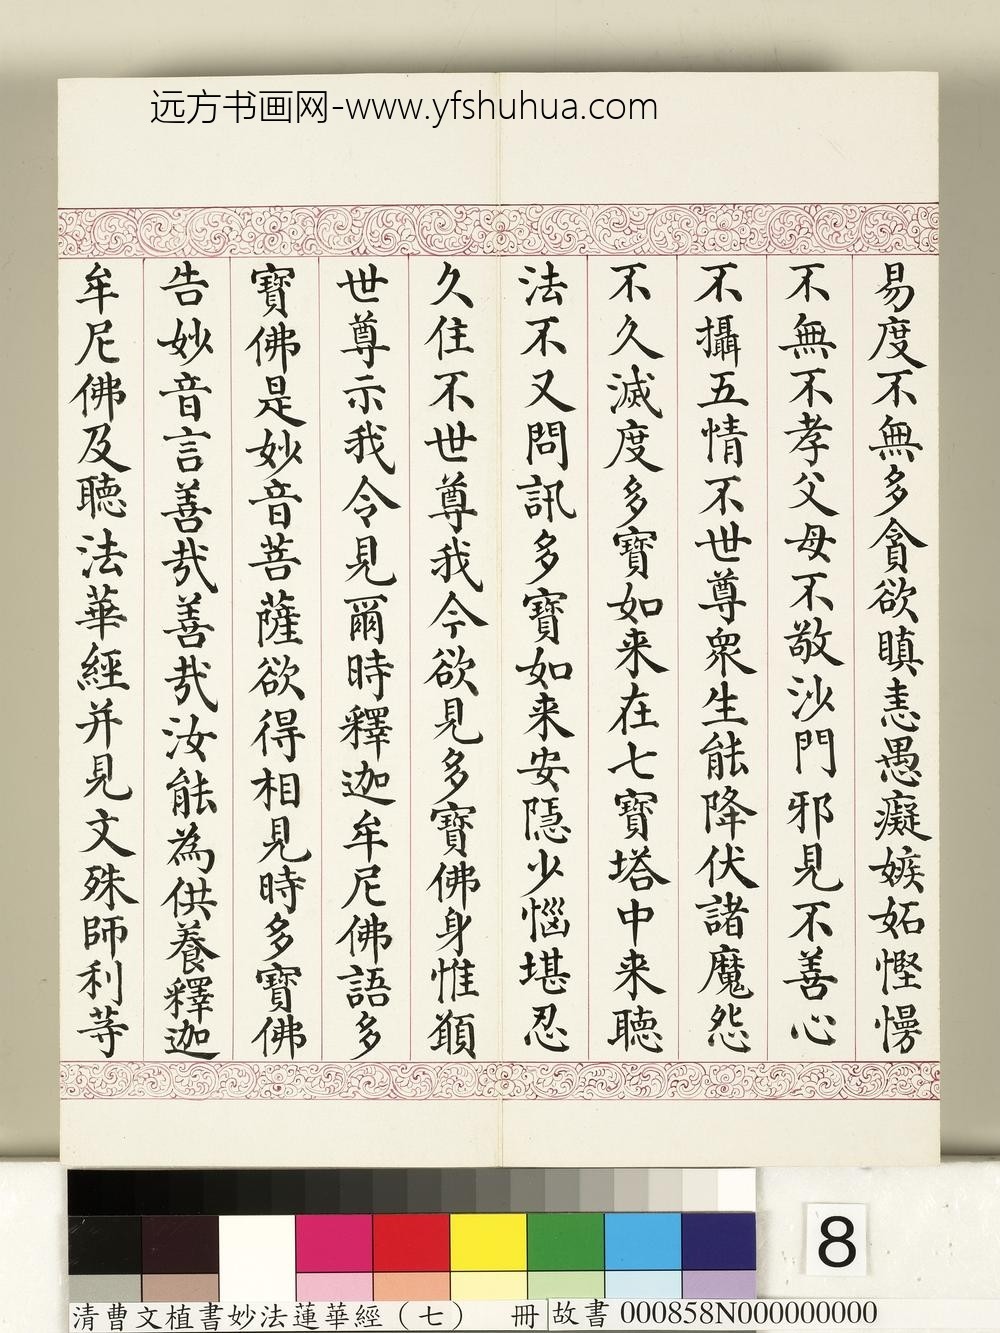 远方书画网-www.yfshuhua.com
易度不無多貪欲瞋恚愚癡嫉妬慳慢
不無不孝父母不敬沙門邪見不善心
不攝五情不世尊衆生能降伏諸魔怨
不久滅度多寶如来在七寶塔中来聽
法不又問訊多寶如来安隱少惱堪忍
久住不世尊我今欲見多寶佛身惟願
世尊示我令見爾時釋迦牟尼佛語多
寶佛是妙音菩薩欲得相見時多寶佛
告妙音言善哉善哉汝能為供養釋迦
牟尼佛及聽法華經并見文殊師利等
8
清曹文植書妙法蓮華經（七） 冊
故書 000858N000000000